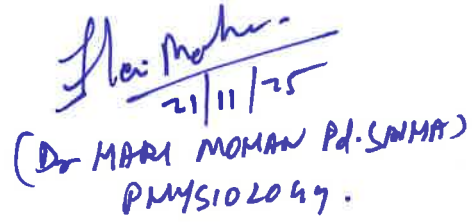 Hari Mohan
21/11/25
(Dr HARI MOHAN Pd. SINHA)
PHYSIOLOGY.